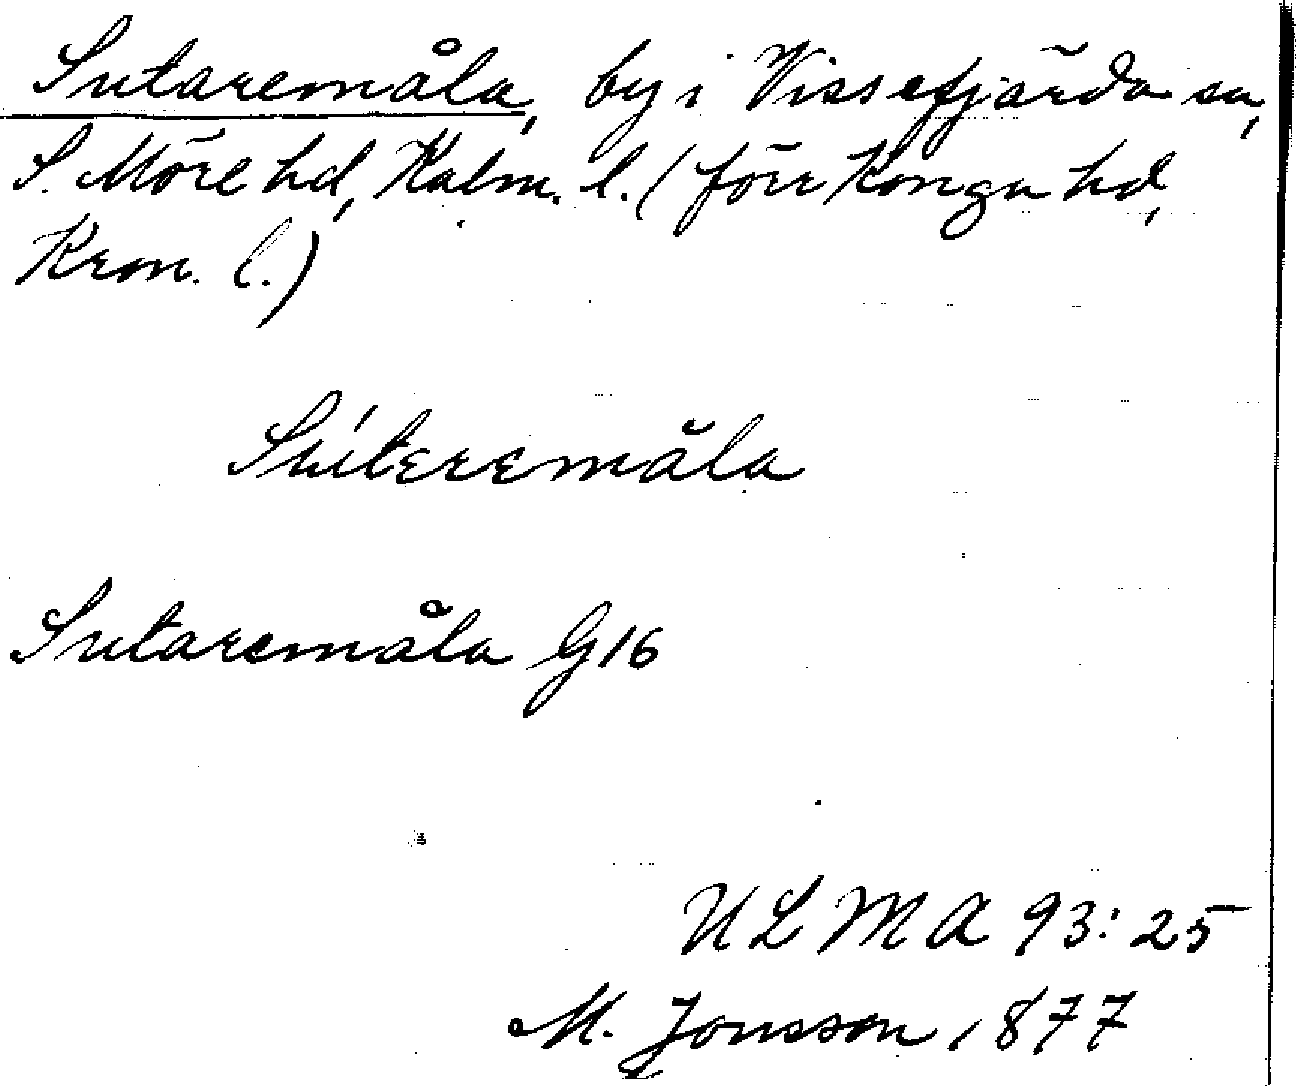 Sutaremåla, by i Vissefjärda sn,
S. Möre hd, Kalm. l. (förr Konga hd,
Kron. l.)
Súteremåla
Sutaremåla G16
ULMA 93:25
M. Jonsson 1877